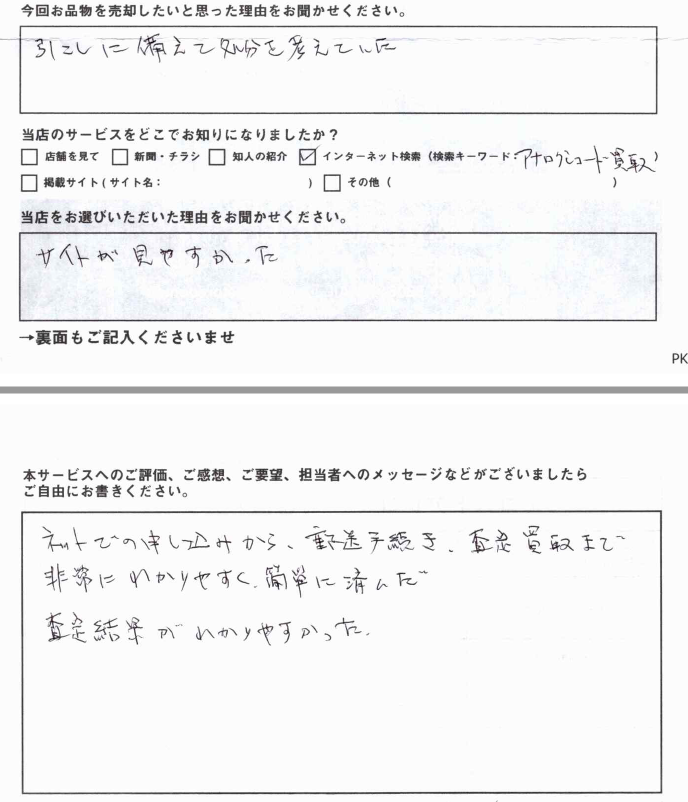 今回お品物を売却したいと思った理由をお聞かせください。
引こしに備えて処分を考えていた
当店のサービスをどこでお知りになりましたか？
□ 店舗を見て □ 新聞・チラシ □ 知人の紹介 ☑ インターネット検索（検索キーワード：アナログレコード買取）
□ 掲載サイト（サイト名：　　　） □ その他（　　　）
当店をお選びいただいた理由をお聞かせください。
サイトが見やすかった
→裏面もご記入くださいませ
PK
本サービスへのご評価、ご感想、ご要望、担当者へのメッセージなどがございましたら
ご自由にお書きください。
ネットでの申し込みから、郵送手続き、査定買取まで
非常にわかりやすく、簡単に済んだ
査定結果がわかりやすかった。